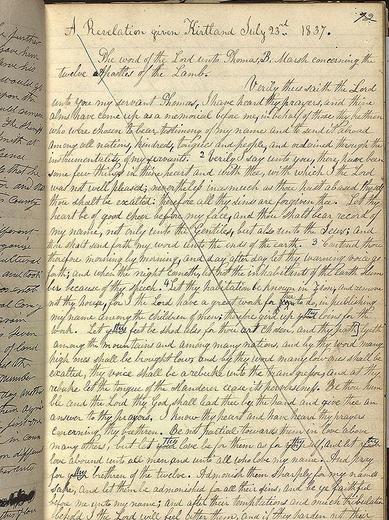 72
A Revelation given Kirtland July 23rd 1837.
The word of the Lord unto Thomas, B. Marsh concerning the
twelve apostles of the Lamb.
Verily thus saith the Lord
unto you my servant Thomas, I have heard thy prayers, and thine
alms have come up as a memorial before me, in behalf of those thy brethren
who were chosen to bear testimony of my name and to send it abroad
among all nations, kindreds, tongues and people, and ordained through the
instrumentality of my servants. 2 Verily I say unto you, there have been
some few things in thine heart and with thee, with which I the Lord
was not well pleased; nevertheless inasmuch as thou hast abased thyself
thou shalt be exalted: therefore all thy sins are forgiven thee. Let thy
heart be of good cheer before my face, and thou shalt bear record of
my name, not only unto the Gentiles, but also unto the Jews; and
thou shalt send forth my word unto the ends of the earth. 3 Contend thou
therefore morning by morning, and day after day let thy warning voice go
forth; and when the night cometh, let not the inhabitants of the earth slum
ber because of thy speech. 4 Let thy habitation be known in Zion, and remove
not thy house, for I the Lord have a great work for you to do, in publishing
my name among the children of men; therefore gird up your loins for the
work. Let your feet be shod also for thou art chosen, and thy path lyeth
among the mountains and among many nations, and by thy word many
high ones shall be brought low; and by thy word many low ones shall be
exalted, thy voice shall be a rebuke unto the transgressor, and at thy
rebuke let the tongue of the slanderer cease its perverseness. Be thou hum
ble and the Lord thy God shall lead thee by the hand and give thee an
answer to thy prayers. I know thy heart and have heard thy prayers
concerning thy brethren. Be not partial towards them in love above
many others, but let your love be for them as for yourself, and let your
love abound unto all men and unto all who love my name. And pray
for your brethren of the twelve. Admonish them sharply for my name's
sake, and let them be admonished for all their sins, and be ye faithful
before me unto my name; and after their temptations and much tribulation
behold I the Lord will feel after them, and if they harden not their